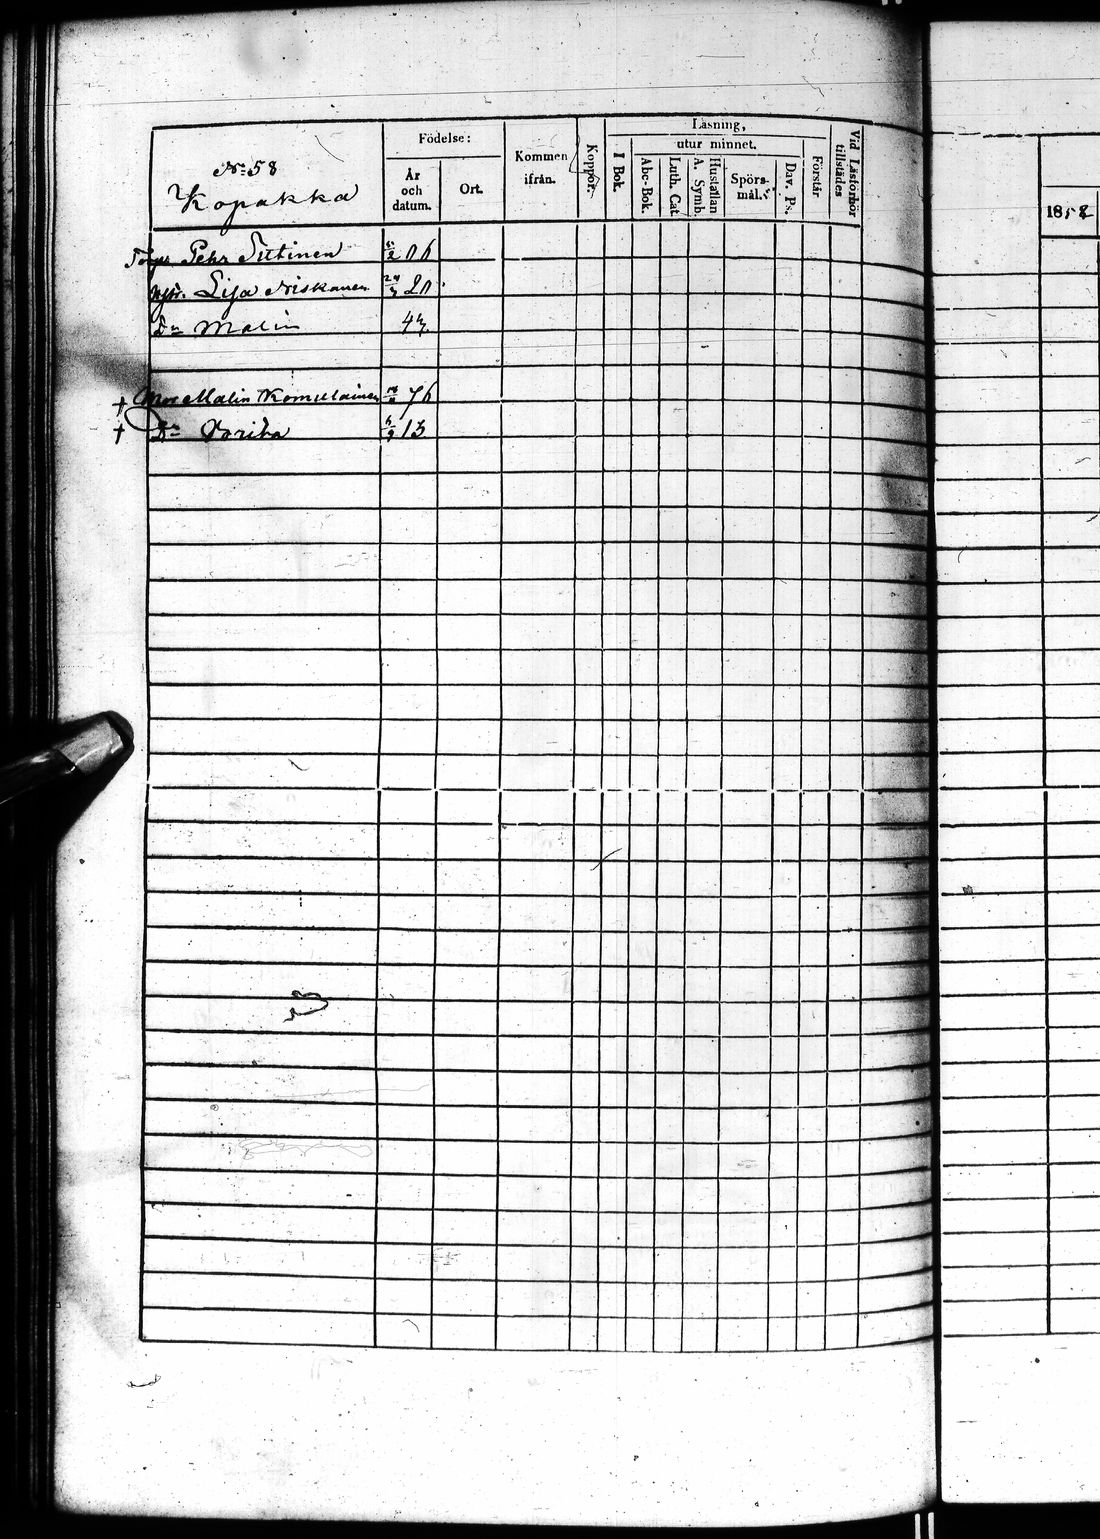 No 58
Kopakka
Födelse:
År och datum.
Ort.
Kommen ifrån.
Koppor.
Läsning,
I Bok.
utur minnet.
Abc-Bok.
Luth. Cat.
Hustaflan A. Symb.
Spörs-mål.
Dav. Ps.
Förstår
Vid Läsförhör tillstädes
1858
Pehr Tiitinen 06
Hstr. Lisa Niskanen 20
Dr Malin 43
† Mor Malin Komulainen 76
† Dr 13